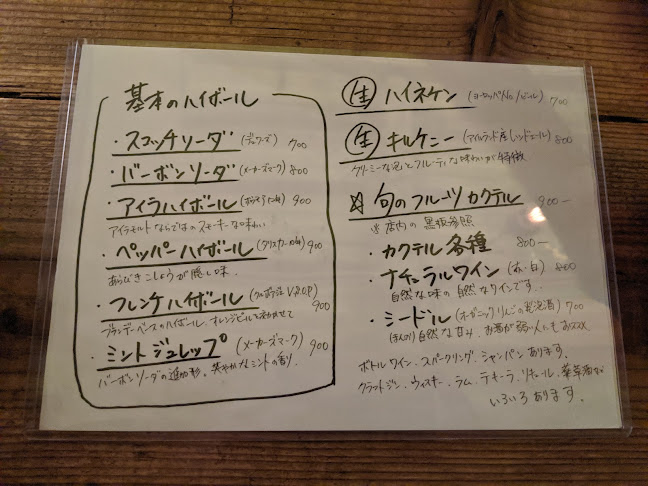 基本のハイボール
・スコッチソーダ (デュワーズ) 700
・バーボンソーダ (メーカーズマーク) 800
・アイラハイボール 900
アイラモルトならではのスモーキーな味わい
・ペッパーハイボール 900
あらびきこしょうが隠し味.
・フレンチハイボール (クルボアジェ V.S.O.P) 900
ブランデーベースのハイボール.オレンジピールを
・ミントジュレップ (メーカーズマーク) 900
バーボンソーダの進化形.爽やかなミントの香り.
生 ハイネケン (ヨーロッパNo.1ビール) 700
生 キルケニー (アイルランド産レッドエール) 800
クリーミーな泡とフルーティな味わいが特徴
☆ 旬のフルーツカクテル 900ー
店内の黒板参照
・カクテル各種 800ー
・ナチュラルワイン (赤・白) 800
自然な味の自然なワインです.
・シードル (オーガニックりんごの発泡酒) 700
自然な甘み.お酒が弱い人もおススメ
ボトルワイン.スパークリング.シャンパンあります.
クラフトジン.ウィスキー.ラム.テキーラ.リキュール.薬草酒など
いろいろあります.